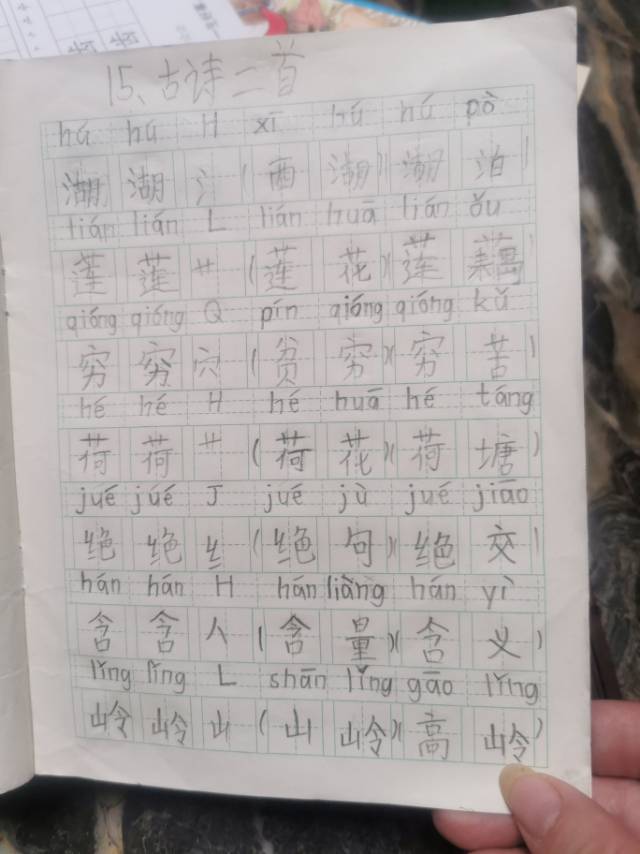 15、古诗二首
hú hú H xī hú hú pō
湖 湖 氵 (西 湖)(湖 泊)
lián lián L lián huā lián ǒu
莲 莲 艹 (莲 花)(莲 藕)
qióng qióng Q pín qióng qióng kǔ
穷 穷 穴 (贫 穷)(穷 苦)
hé hé H hé huā hé táng
荷 荷 艹 (荷 花)(荷 塘)
jué jué J jué jù jué jiāo
绝 绝 纟 (绝 句)(绝 交)
hán hán H hán liàng hán yì
含 含 人 (含 量)(含 义)
lǐng lǐng L shān lǐng gāo lǐng
岭 岭 山 (山 岭)(高 岭)